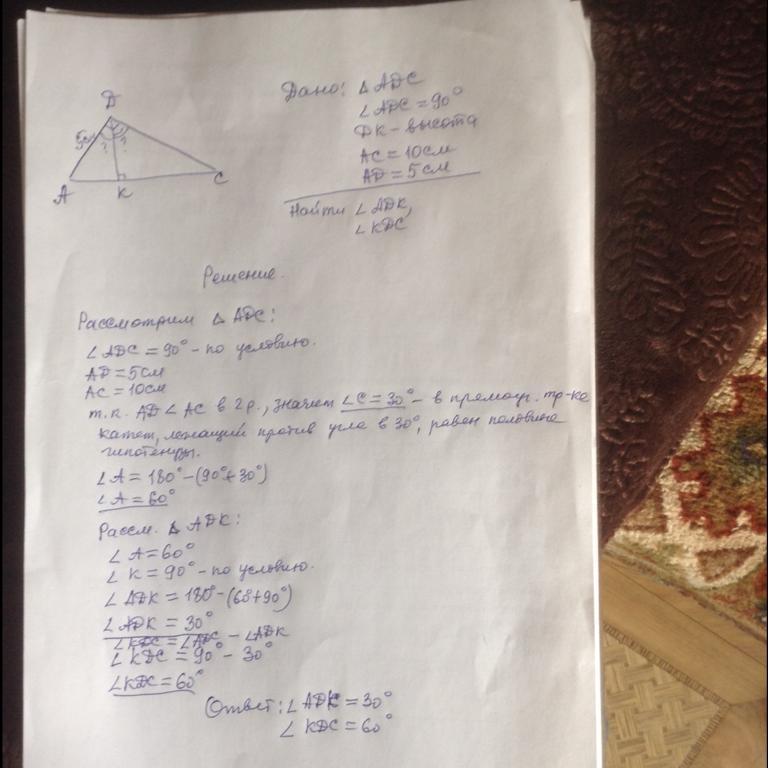 D
5см
? ?
A K C
Дано: △ ADC
∠ ADC = 90°
DK - высота
AC = 10см
AD = 5см
Найти ∠ ADK,
∠ KDC
Решение.
Рассмотрим △ ADC:
∠ ADC = 90° - по условию.
AD = 5см
AC = 10см
т.к. AD < AC в 2р., значит ∠C = 30° - в прямоуг. тр-ке
катет, лежащий против угла в 30°, равен половине
гипотенузы.
∠ A = 180° - (90° + 30°)
∠ A = 60°
Рассм. △ ADK:
∠ A = 60°
∠ K = 90° - по условию.
∠ ADK = 180° - (60 + 90°)
∠ ADK = 30°
∠ KDC = ∠ADC - ∠ADK
∠ KDC = 90° - 30°
∠KDC = 60°
Ответ: ∠ ADK = 30°
∠ KDC = 60°